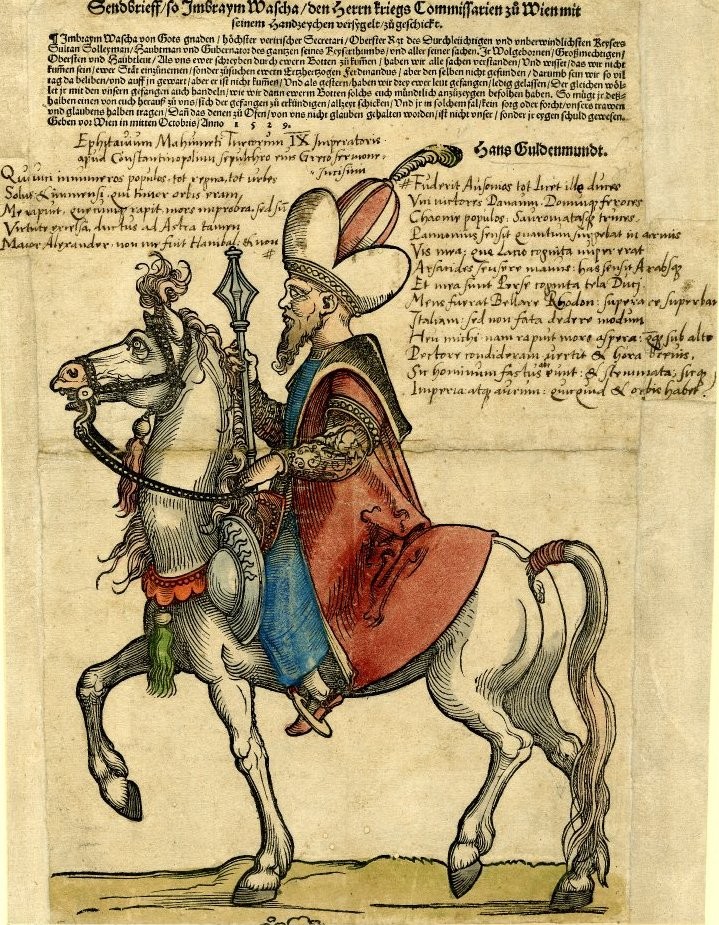 Sendbrieff/so Imbraym Wascha/den Herrn kriegs Commissarien zů Wien mit
seinem Handzeychen versygelt/zůgeschickt.
Imbraym Wascha von Gots gnaden/höchster Secretari/Oberster Rat des Durchleüchtigen und unberwindlichsten Keysers
Sultan Solleyman/Haubtman und Gubernator des gantzen seines Keyserthumbs/und aller seiner sachen. Ir Wolgebornen/Großmechtigen/
Obersten und Haubtleut/Als uns ewer schreyben durch ewern Botten zů kummen/haben wir alle sachen verstanden/Und wisset/das wir nicht
kummen sein/ewer Stat einzunemen/sonder zůsuchen ewern Ertzhertzogen Ferdinandus/aber den selben nicht gefunden/darumb sein wir so vil
tag da beliben/und auff jn gewart/aber er ist nicht kummen/Und als gestern/haben wir drey ewer leut gefangen/ledig gelassen/Der gleichen wöl-
let jr mit den unsern gefangen auch handeln/wie wir dann ewerm Botten solchs euch mündtlich anzuzeygen befolhen haben. So mügt jr deß-
halben einen von euch herauß zů uns/sich der gefangen zů erkündigen/allzeyt schicken/Und jr in solchem fal/kein sorg oder forcht/unsers trawen
und glaubens halben tragen/Dañ das denen zů Ofen/von uns nicht glauben gehalten worden/ist nicht unser/sonder jr eygen schuld gewesen.
Geben vor Wien in mitten Octobris/Anno 1529.
Imperatoris
apud Constantinopolim sermone
Hans Guldenmundt.
populos, tot regna, tot urbes
Solus qui timor orbis eram,
Me rapuit, rapit mors improba, sed
Virtute excelsa, ductus ad Astra tamen
Maior Alexander non me fuit Hanibal, & non
Fuderit Ausonios tot licet ille duces
Vici victores
Chaonie populos
sensit quantum in armis
Vis mea, que
sensere manus: has sensit
Et mea sunt cognita tela Duci
Mens fuerat Bellare Rhodon: superare superbam
Italiam: sed non fata dedere modum
Heu michi nam rapuit mors aspera: sub alto
Pectore condideram vertit & hora
Sic hominum fastus & stemmata: sicq
Imperia atq aurum: quicquid & orbis habet.